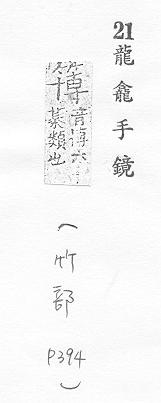 21龍龕手鏡
簙音博六
箸類也
（竹部 P394）